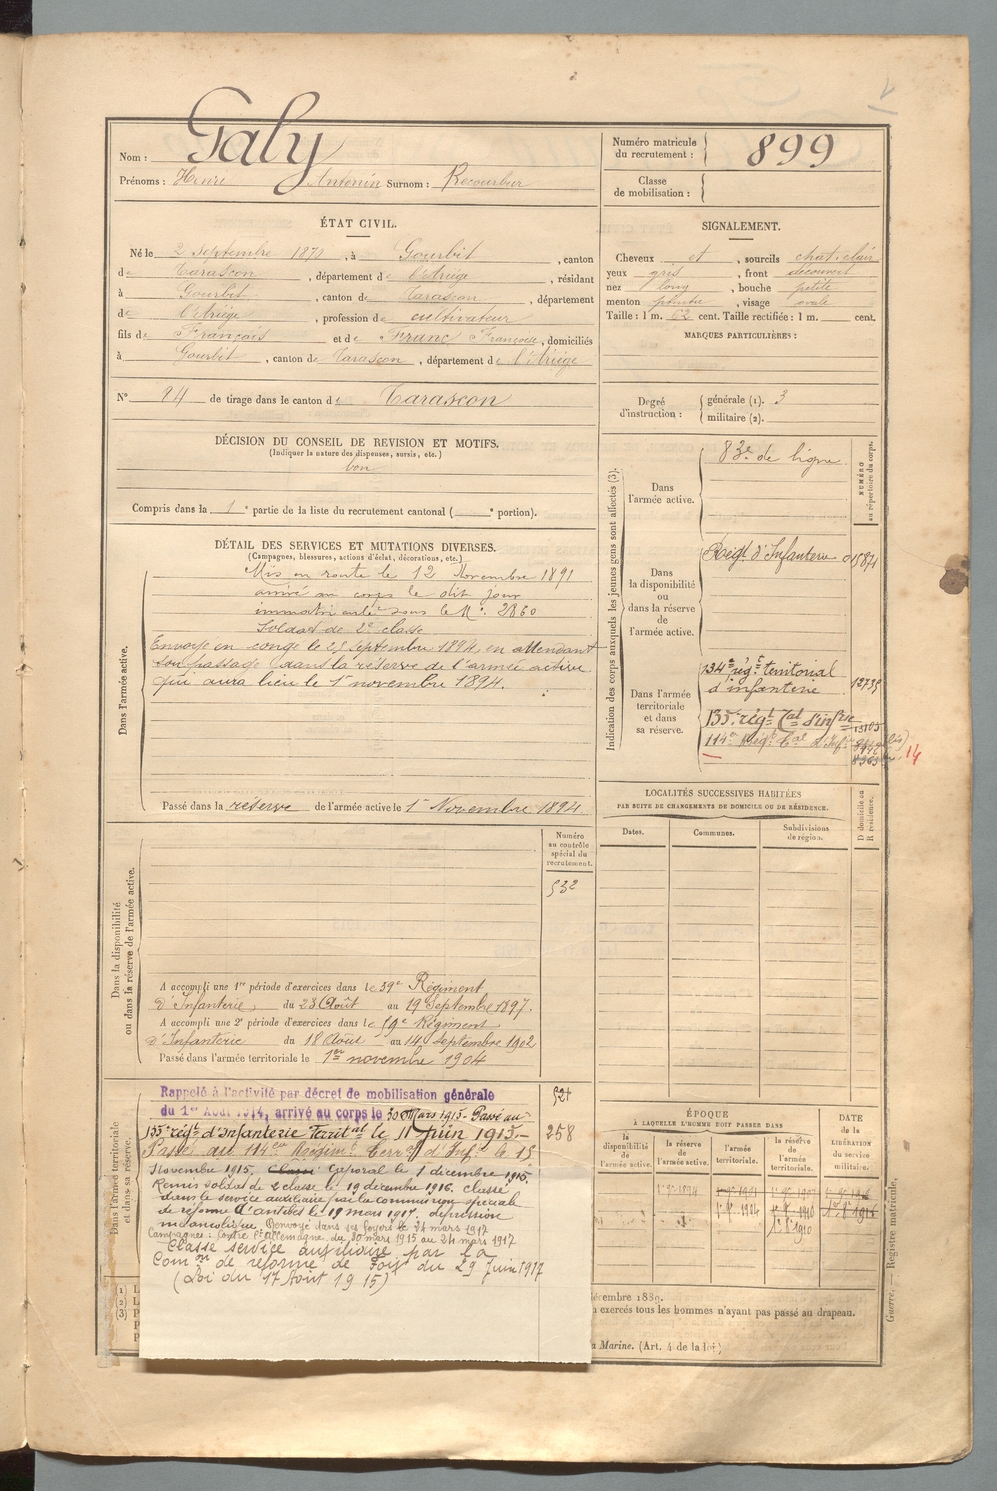 Nom : Galy
Prénoms : Henri Antonin Surnom : Recourbur
Numéro matricule du recrutement : 899
Classe de mobilisation :
ÉTAT CIVIL.
Né le 2 Septembre 1870, à Gourbit, canton
de Tarascon, département de l'Ariège, résidant
à Gourbit, canton de Tarascon, département
de l'Ariège, profession de cultivateur
fils de François et de Françoise, domiciliés
à Gourbit, canton de Tarascon, département de l'Ariège
N° 94 de tirage dans le canton de Tarascon
SIGNALEMENT.
Cheveux et, sourcils chat. clair
yeux gris, front découvert
nez long, bouche petite
menton, visage ovale
Taille : 1 m. 62 cent. Taille rectifiée : 1 m. cent.
MARQUES PARTICULIÈRES :
Degré d'instruction : générale (1). 3
militaire (2).
DÉCISION DU CONSEIL DE REVISION ET MOTIFS.
(Indiquer la nature des dispenses, sursis, etc.)
bon
Compris dans la 1e partie de la liste du recrutement cantonal ( e portion).
DÉTAIL DES SERVICES ET MUTATIONS DIVERSES.
(Campagnes, blessures, actions d'éclat, décorations, etc.)
Dans l'armée active.
Mis en route le 12 Novembre 1891
arrivé au corps le dit jour
immatriculé sous le N°. 2860
Soldat de 2e classe
Envoyé en congé le 25 septembre 1894, en attendant
son passage dans la réserve de l'armée active
qui aura lieu le 1r novembre 1894.
Passé dans la réserve de l'armée active le 1r Novembre 1894
Indication des corps auxquels les jeunes gens sont affectés (3).
NUMÉRO au répertoire du corps.
Dans l'armée active.
83e de ligne
Dans la disponibilité ou dans la réserve de l'armée active.
Régt d'Infanterie 015871
Dans l'armée territoriale et dans sa réserve.
134e régt territorial
d'infanterie 12735
135e régt Tal d'infie 13105
114e Régt Tal d'Infie
14
LOCALITÉS SUCCESSIVES HABITÉES
PAR SUITE DE CHANGEMENTS DE DOMICILE OU DE RÉSIDENCE.
Dates. Communes. Subdivisions de région. D domicile ou R résidence.
Dans la disponibilité ou dans la réserve de l'armée active.
Numéro au contrôle spécial du recrutement.
532
A accompli une 1re période d'exercices dans le 59e Régiment
d'Infanterie, du 23 Août au 19 Septembre 1897.
A accompli une 2e période d'exercices dans le 59e Régiment
d'Infanterie du 18 Août au 14 Septembre 1902
Passé dans l'armée territoriale le 1er novembre 1904
Dans l'armée territoriale et dans sa réserve.
Rappelé à l'activité par décret de mobilisation générale
du 1er Août 1914, arrivé au corps le 30 Mars 1915. Passé au
135e régt d'Infanterie Territal le 11 Juin 1915.
Passé au 114e Régimt Terral d'Inf. le 15
Novembre 1915. Classé Caporal le 1 décembre 1915.
Remis soldat de 2 classe le 19 décembre 1916. classé
dans le service auxiliaire par la commission spéciale
de réforme d'Antibes le 19 mars 1917. dépression
mélancolique. Renvoyé dans ses foyers le 24 mars 1917
Campagnes : Contre l'Allemagne du 30 mars 1915 au 24 mars 1917
Classé service auxiliaire par la
Comon de réforme de Foix du 29 Juin 1917
(Loi du 17 Août 1915)
521
258
ÉPOQUE
À LAQUELLE L'HOMME DOIT PASSER DANS
la disponibilité de l'armée active. la réserve de l'armée active. l'armée territoriale. la réserve de l'armée territoriale.
DATE de la LIBÉRATION du service militaire.
décembre 1889.
exercés tous les hommes n'ayant pas passé au drapeau.
la Marine. (Art. 4 de la loi)
Guerre. — Registre matricule.